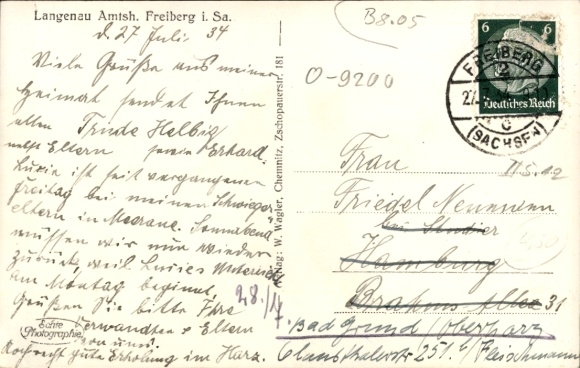 Langenau Amtsh. Freiberg i. Sa.
d. 27 Juli 34
Viele Grüße aus meiner
Heimat sendet Ihnen
allen Trude Helbig
nebst Eltern sowie Erhard.
ist seit vergangenen
Freitag bei meinen Schwieger-
eltern in Meerane. Sonnabend
müssen wir nun wieder
zurück, weil Unterricht
am Montag beginnt.
Grüßen Sie bitte Ihre
Verwandten + Eltern
von uns.
Recht gute Erholung im Harz.
Echte
Photographie
Verlag: W. Wagler, Chemnitz, Zschopauerstr. 181
28/17
B8.05
O-9200
6 6
Deutsches Reich
FREIBERG
2
27.7.34
c
(SACHSEN)
Frau
Friedel Neumann
bei
Hamburg
Brahms Allee 31
Bad Grund / Oberharz
Clausthalerstr 251. b/ Fleischmann